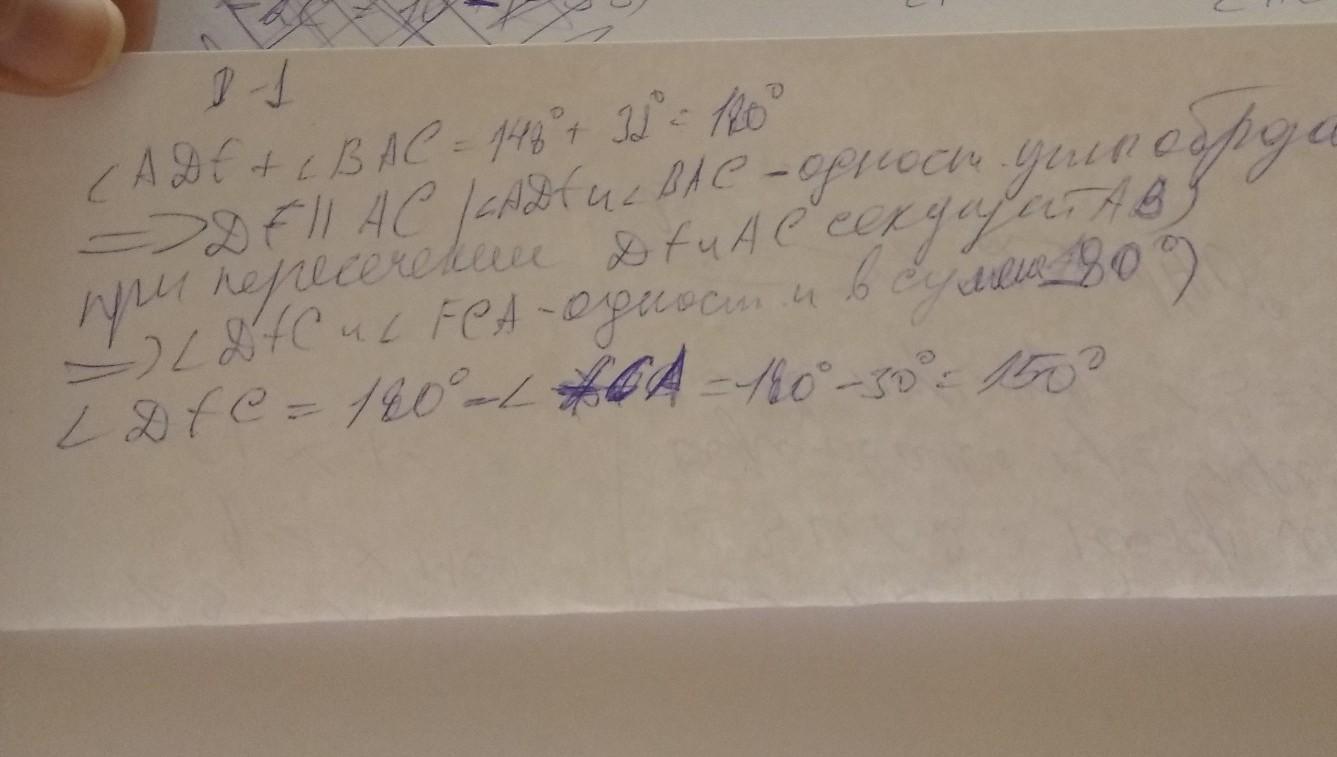 D-1
∠ADF + ∠BAC = 148° + 32° = 180°
=> DF || AC (∠ADF и ∠BAC - одност. углы образо
при пересечении DF и AC секущей AB)
=> ∠DFC и ∠FCA - одност и в сумме 180°)
∠DFC = 180° - ∠ FCA = 180° - 30° = 150°